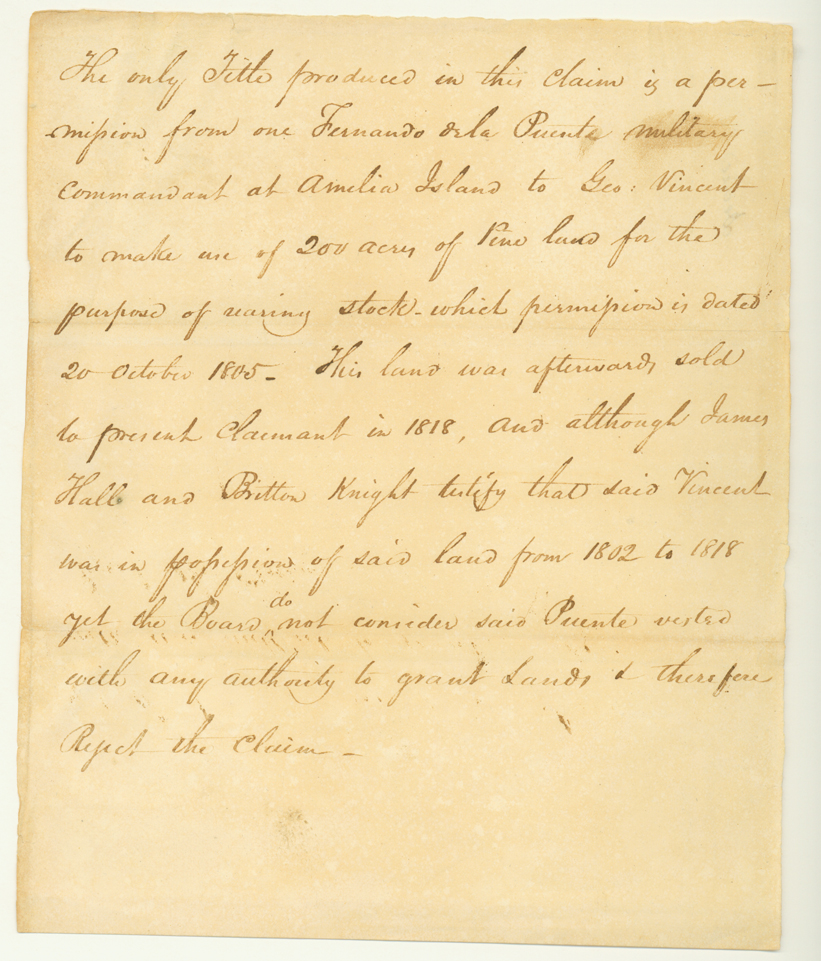 The only Title produced in this Claim is a per-
-mission from one Fernando de la Puente military
commandant at Amelia Island to Geo: Vincent
to make use of 200 acres of Pine land for the
purpose of rearing stock - which permission is dated
20 October 1805 - This land was afterwards sold
to present Claimant in 1818, and although James
Hall and Britton Knight testify that said Vincent
was in possession of said land from 1802 to 1818
yet the Board do not consider said Puente vested
with any authority to grant Lands & therefore
Reject the Claim -